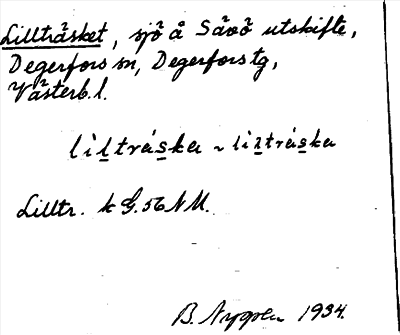 Lillträsket, sjö å Sävö utskifte,
Degerfors sn, Degerfors tg,
Västerb. l.
lìltráska ~ lìltráska
Lilltr. k G. 56 NM.
B. Nygren 1934.